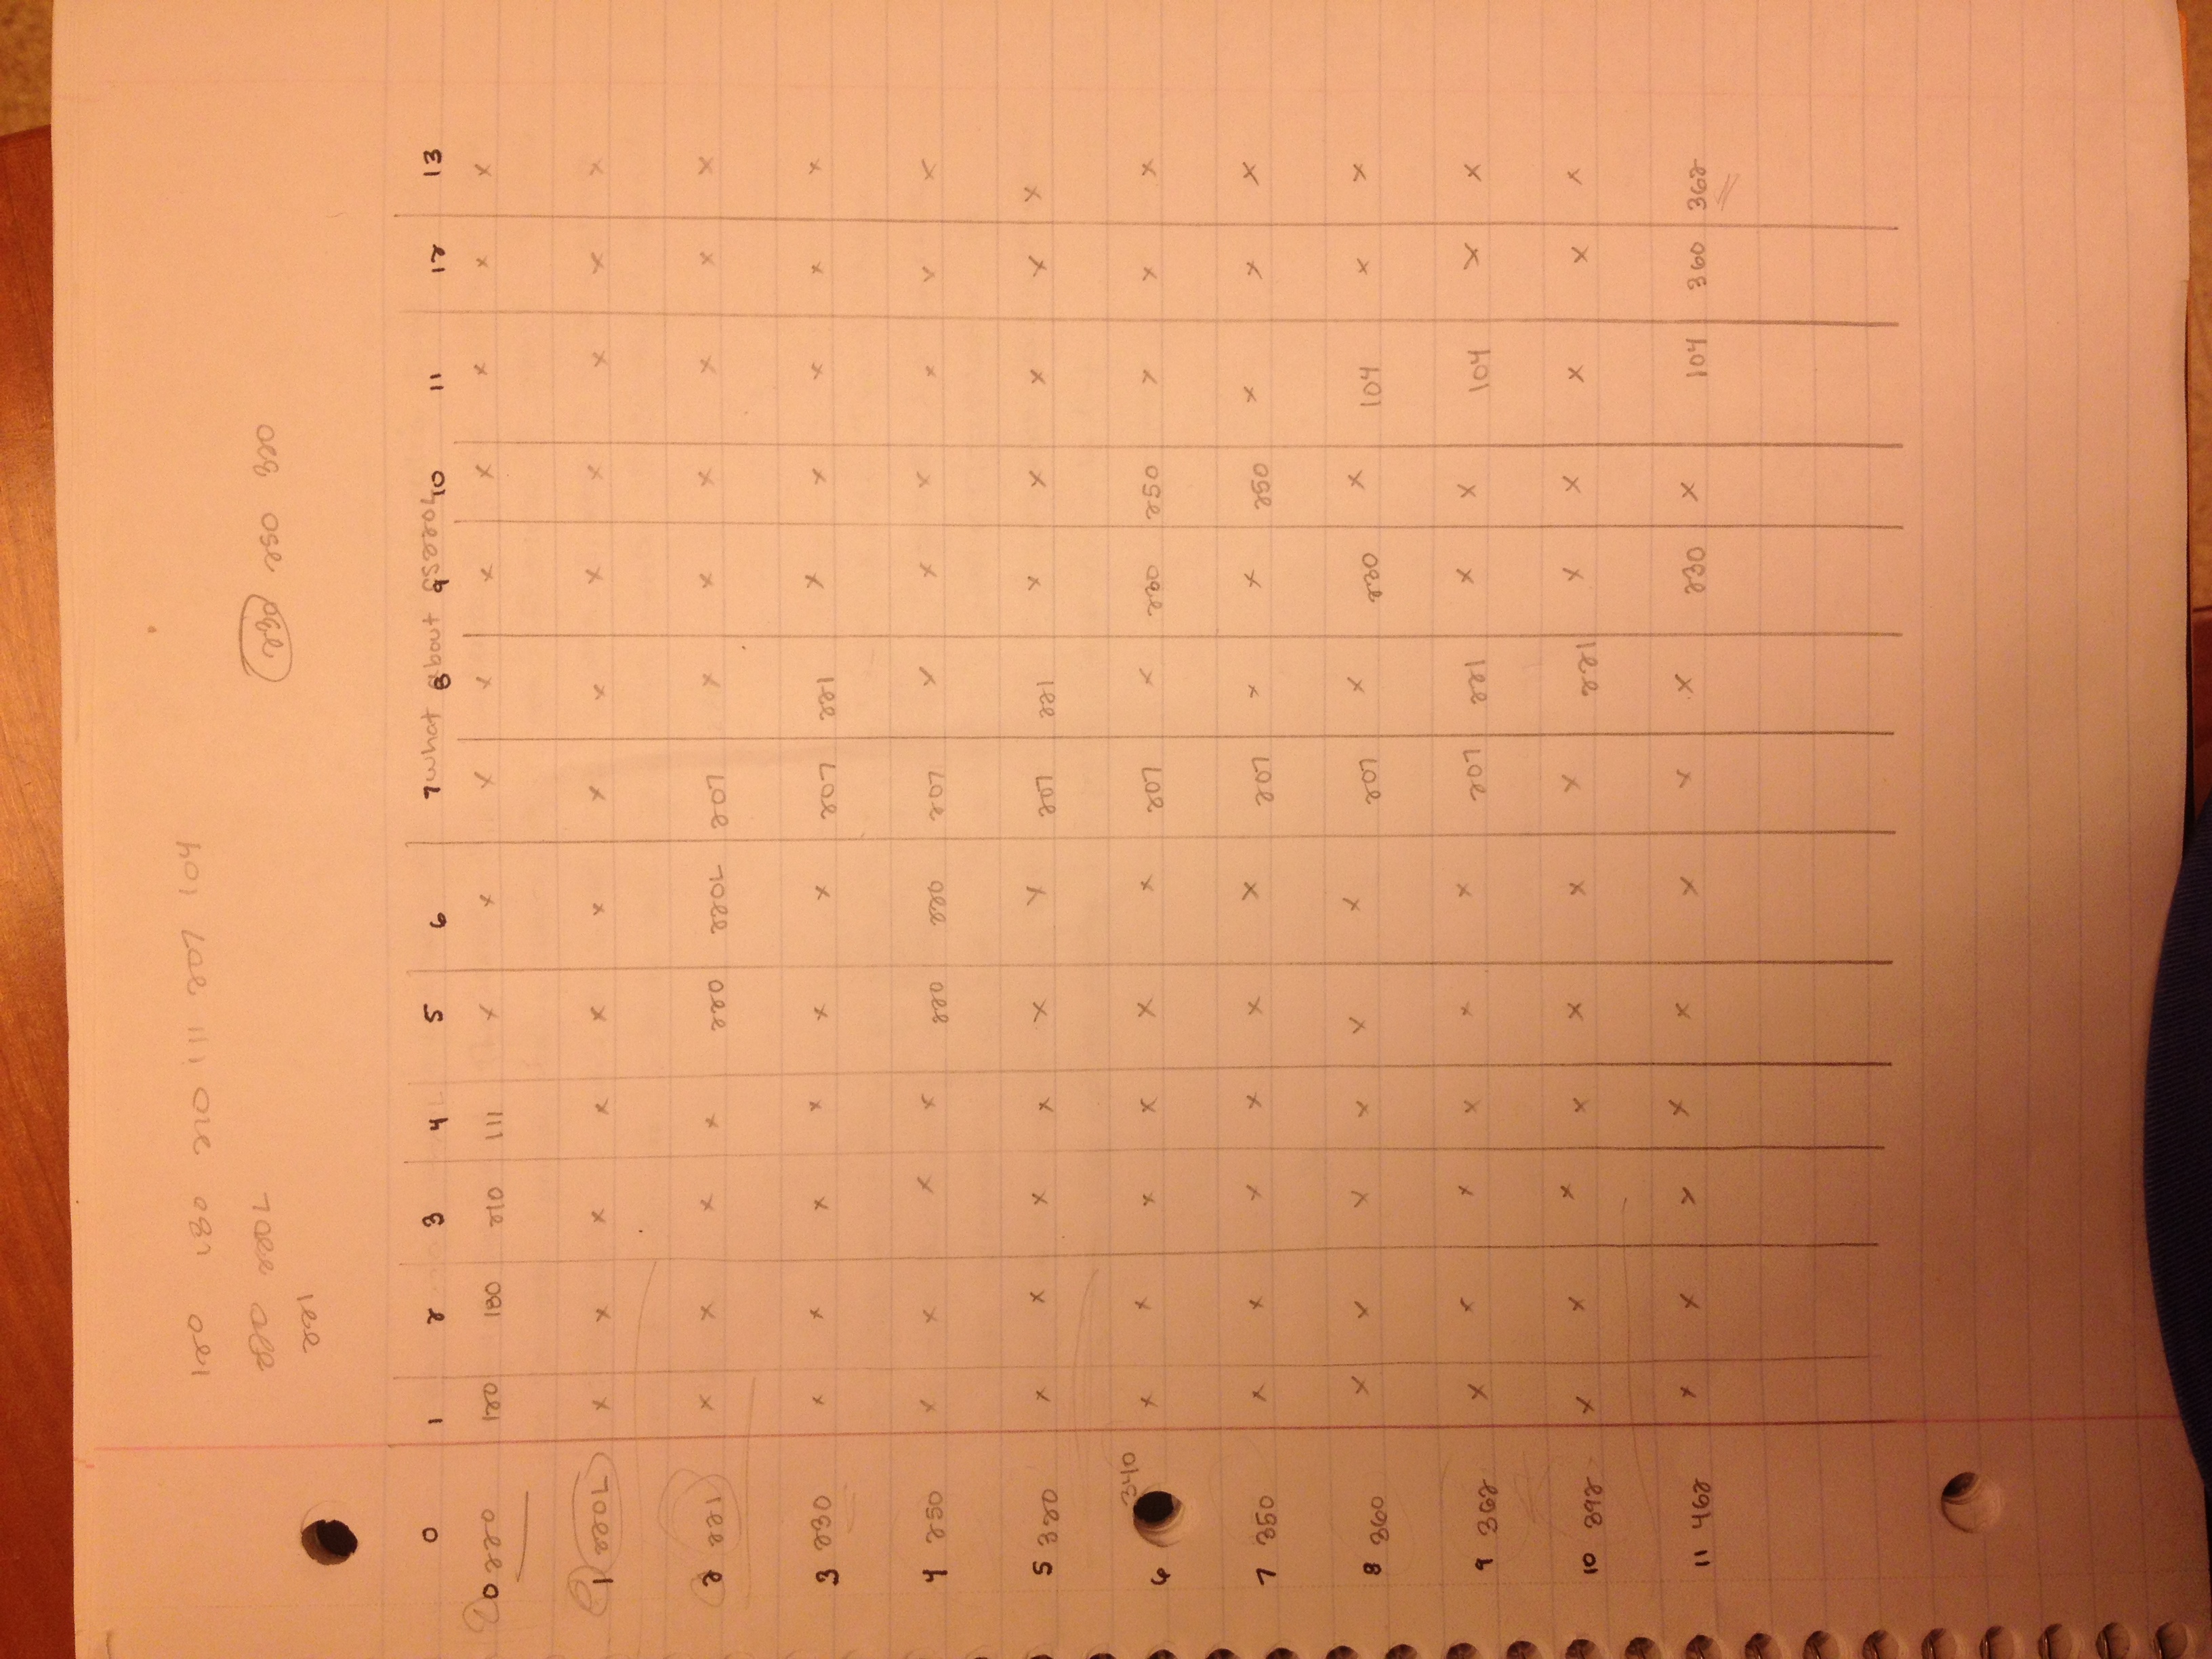 120 180 210 111 207 104
220 220L
230 250 320
221
what about CS220L
0 1 2 3 4 5 6 7 8 9 10 11 12 13
0 220 120 180 210 111 x x x x x x x x x
1 220L x x x x x x x x x x x x x
2 221 x x x x 220 220L 207 x x x x x x
3 230 x x x x x x 207 221 x x x x x
4 250 x x x x 220 220 207 x x x x x x
5 320 x x x x x x 207 221 x x x x x
6 340 x x x x x x 207 x 230 250 x x x
7 350 x x x x x x 207 x x 250 x x x
8 360 x x x x x x 207 x 230 x 104 x x
9 362 x x x x x x 207 221 x x 104 x x
10 392 x x x x x x x 221 x x x x x
11 462 x x x x x x x x 230 x 104 360 362